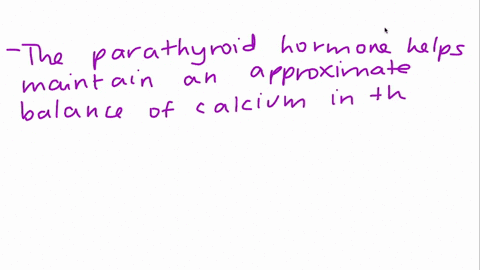 - The parathyroid hormone helps
maintain an approximate
balance of calcium in th